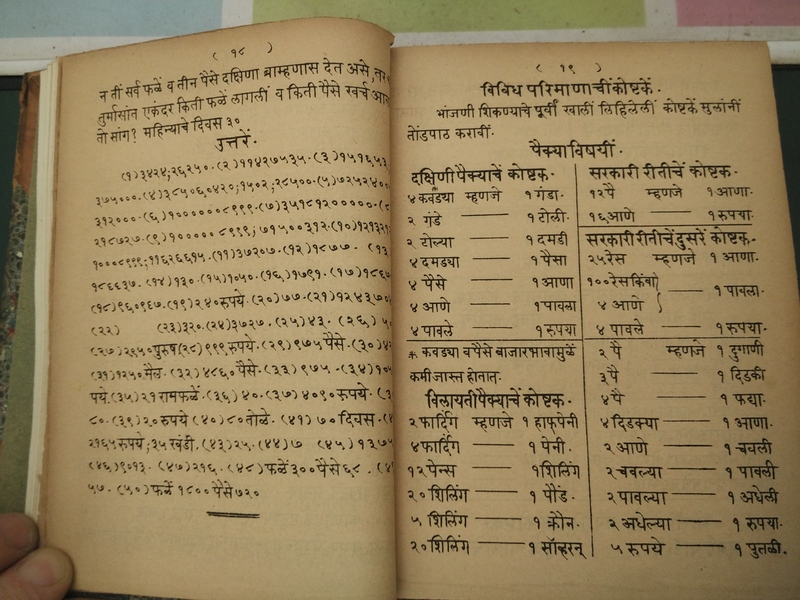 ( १८ )
न तीं सर्व फळें व तीन पैसे दक्षिणा ब्राम्हणास देत असे, तर
तुर्मासांत एकंदर किती फळें लागलीं व किती पैसे खर्च
तो सांग? महिन्याचे दिवस ३०
उत्तरें.
(१) ३४२४; २६२५०. (२) ११४२७५३५. (३) १५१६५३
३७५०००. (४) ३८५०६०४२०; १५०२; २८५००. (५) ७२५२४००
३१२०००. (६) १००००००८९९९. (७) ३५१८१२००००.
२१८७२७. (९) १०००००८९९९; ७१५००३१२. (१०)
१०००८९९९; ११६२६६१५. (११) ३७२०७. (१२) १८७७. (१३
१८६६३७. (१४) १३०. (१५) १०५०. (१६) १७९१. (१७)
(१८) ९६०९६७. (१९) २४० रुपये. (२०) ७७. (२१) १२४३७०
(२२) (२३) ३२०. (२४) ३७२७. (२५) ४३. (२६)
(२७) २९५० पुरुष (२८) ९९९ रुपये. (२९) ९७५ पैसे. (३०)
(३१) १२५० मैल. (३२) ४८६० पैसे. (३३) ९७५. (३४)
पये. (३५) २१ रामफळें. (३६) ४०. (३७) ४०९० रुपये.
८०. (३९) २० रुपये (४०) ८० तोळे. (४१) ७० दिवस.
२१६५ रुपये; ३५ खंडी. (४३) २५. (४४) ७ (४५) १३७५
(४६) ९०१३. (४७) २१६. (४८) फळें ३०० पैसे ६८.
५७. (५०) फळें १८०० पैसे ७२०
( १९ )
विविध परिमाणाचीं कोष्टकें.
भांजणी शिकण्याचे पूर्वी खालीं लिहिलेलीं कोष्टकें मुलांनीं
तोंडपाठ करावीं.
पैक्याविषयीं.
दक्षिणी पैक्याचें कोष्टक.
४ कवड्या म्हणजे १ गंडा.
२ गंडे —— १ टोली.
२ टोल्या —— १ दमडी
४ दमड्या —— १ पैसा
४ पैसे —— १ आणा
४ आणे —— १ पावला
४ पावले —— १ रुपया
* कवड्या व पैसे बाजारभावामुळें
कमी जास्त होतात.
विलायती पैक्याचें कोष्टक.
२ फार्दिंग म्हणजे १ हाफ्पेनी
४ फार्दिंग —— १ पेनी.
१२ पेन्स —— १ शिलिंग
२० शिलिंग —— १ पौंड.
५ शिलिंग —— १ क्रौन.
२० शिलिंग —— १ सॉव्हरन्
सरकारी रीतीचें कोष्टक.
१२ पै म्हणजे १ आणा.
१६ आणे —— १ रुपया.
सरकारी रीतीचें दुसरें कोष्टक.
२५ रेस म्हणजे १ आणा.
१०० रेस किंवा } —— १ पावला.
४ आणे
४ पावले —— १ रुपया.
२ पै म्हणजे १ दुगाणी
३ पै —— १ दिडकी
४ पै —— १ फद्या.
४ दिडक्या —— १ आणा.
२ आणे —— १ चवली
२ चवल्या —— १ पावली
२ पावल्या —— १ अधेली
२ अधेल्या —— १ रुपया.
५ रुपये —— १ पुतळी.